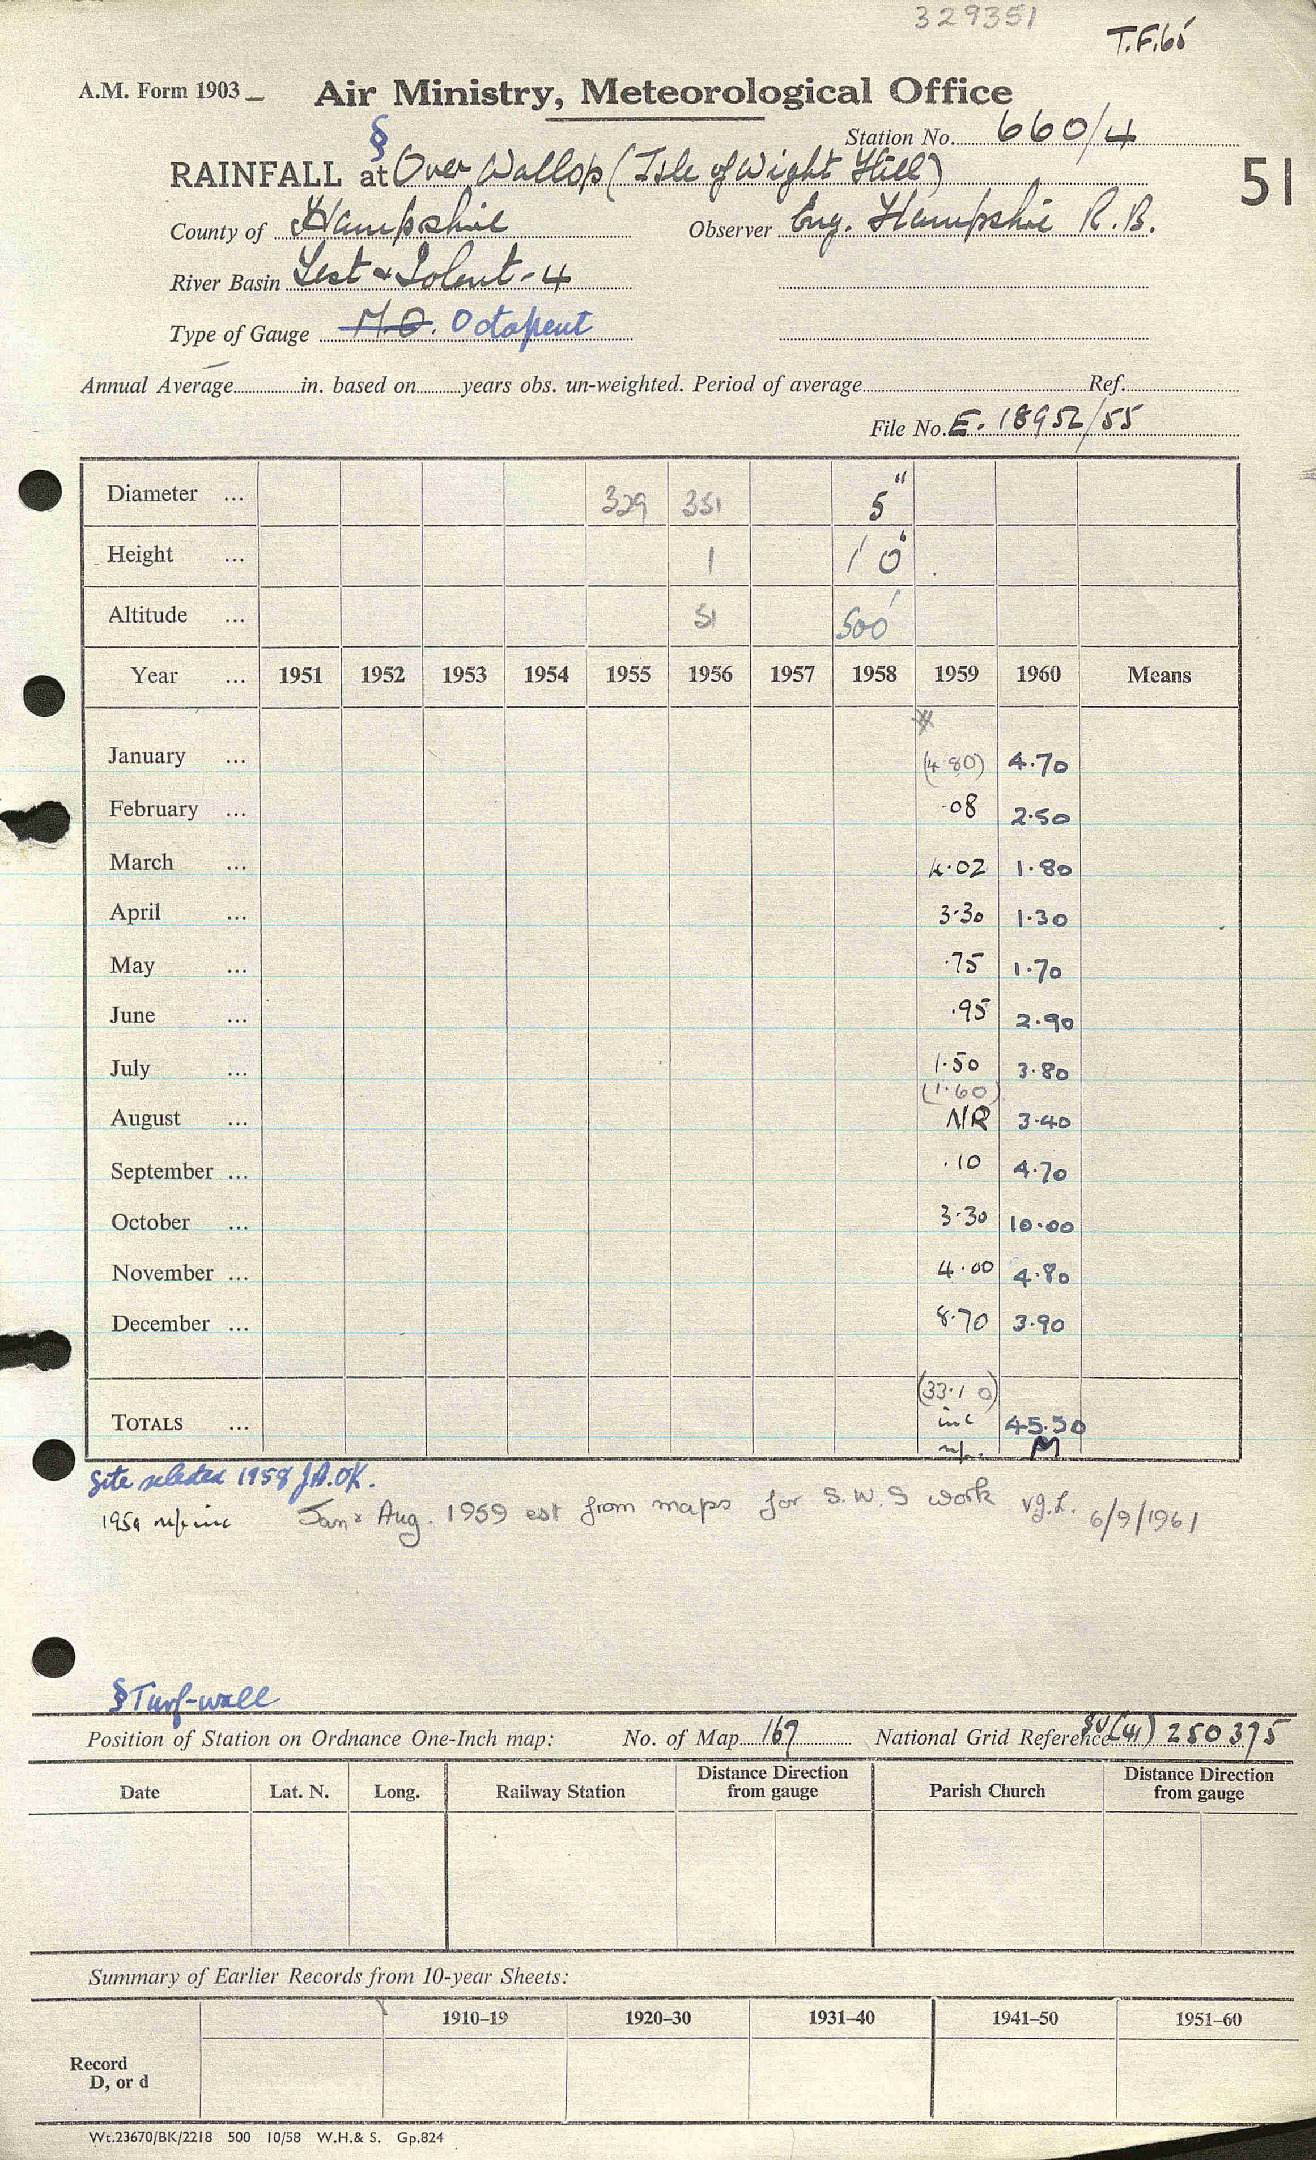 329351
T.F.65
A.M. Form 1903 Air Ministry, Meteorological Office
Station No. 660/4
§
RAINFALL at Over Wallop (Isle of Wight Hill)
51
County of Hampshire Observer Eng. Hampshire R.B.
River Basin Test & Solent - 4
Type of Gauge M.O. Octapent
Annual Average in. based on years obs. un-weighted. Period of average Ref.
File No. E. 18952/55
Diameter ... 329 351 5"
Height ... 1 1' 0"
Altitude ... 51 500'
Year ... 1951 1952 1953 1954 1955 1956 1957 1958 1959 1960 Means
January ... (4.80) 4.70
February ... .08 2.50
March ... 4.02 1.80
April ... 3.30 1.30
May ... .75 1.70
June ... .95 2.90
July ... 1.50 3.80
(1.60)
August ... NR 3.40
September ... .10 4.70
October ... 3.30 10.00
November ... 4.00 4.80
December ... 8.70 3.90
(33.10)
TOTALS ... inc 45.50
n/p. M
Site selected 1958 J.A.OK.
1959 inc Jan & Aug. 1959 est from maps for S.W.S work 6/9/1961
§ Turf-wall
Position of Station on Ordnance One-Inch map: No. of Map 167 National Grid Reference SU(41) 250375
Date Lat. N. Long. Railway Station Distance Direction from gauge Parish Church Distance Direction from gauge
Summary of Earlier Records from 10-year Sheets:
1910–19 1920–30 1931–40 1941–50 1951–60
Record
D, or d
Wt.23670/BK/2218 500 10/58 W.H.& S. Gp.824